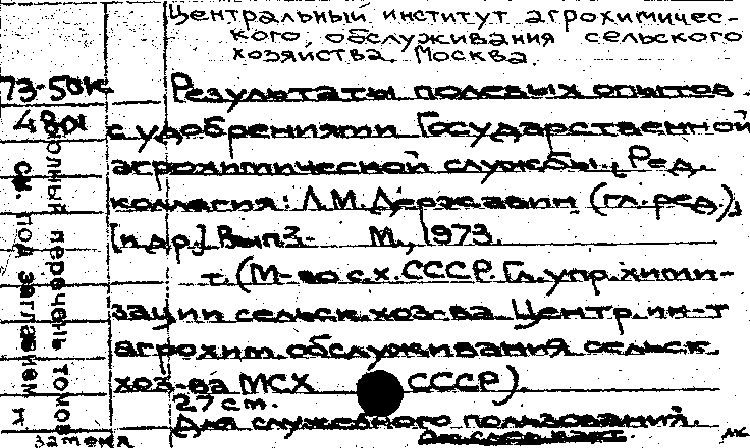 Центральный институт агрохимичес-
кого обслуживания сельского
хозяйства. Москва.
73-50к
Результаты полевых опытов
48
с удобрениями Государственной
агрохимической службы. [Ред.
коллегия: Л.М. Державин (гл. ред.),
[и др.] Вып 3- М., 1973.
т. (М-во с.х. СССР. Гл. упр. хими-
зации сельск. хоз-ва. Центр. ин-т
агрохим. обслуживания сельск.
хоз-ва МСХ СССР).
27 см.
Для служебного пользования.
полный перечень томов
см. под заглавием
замена
АК